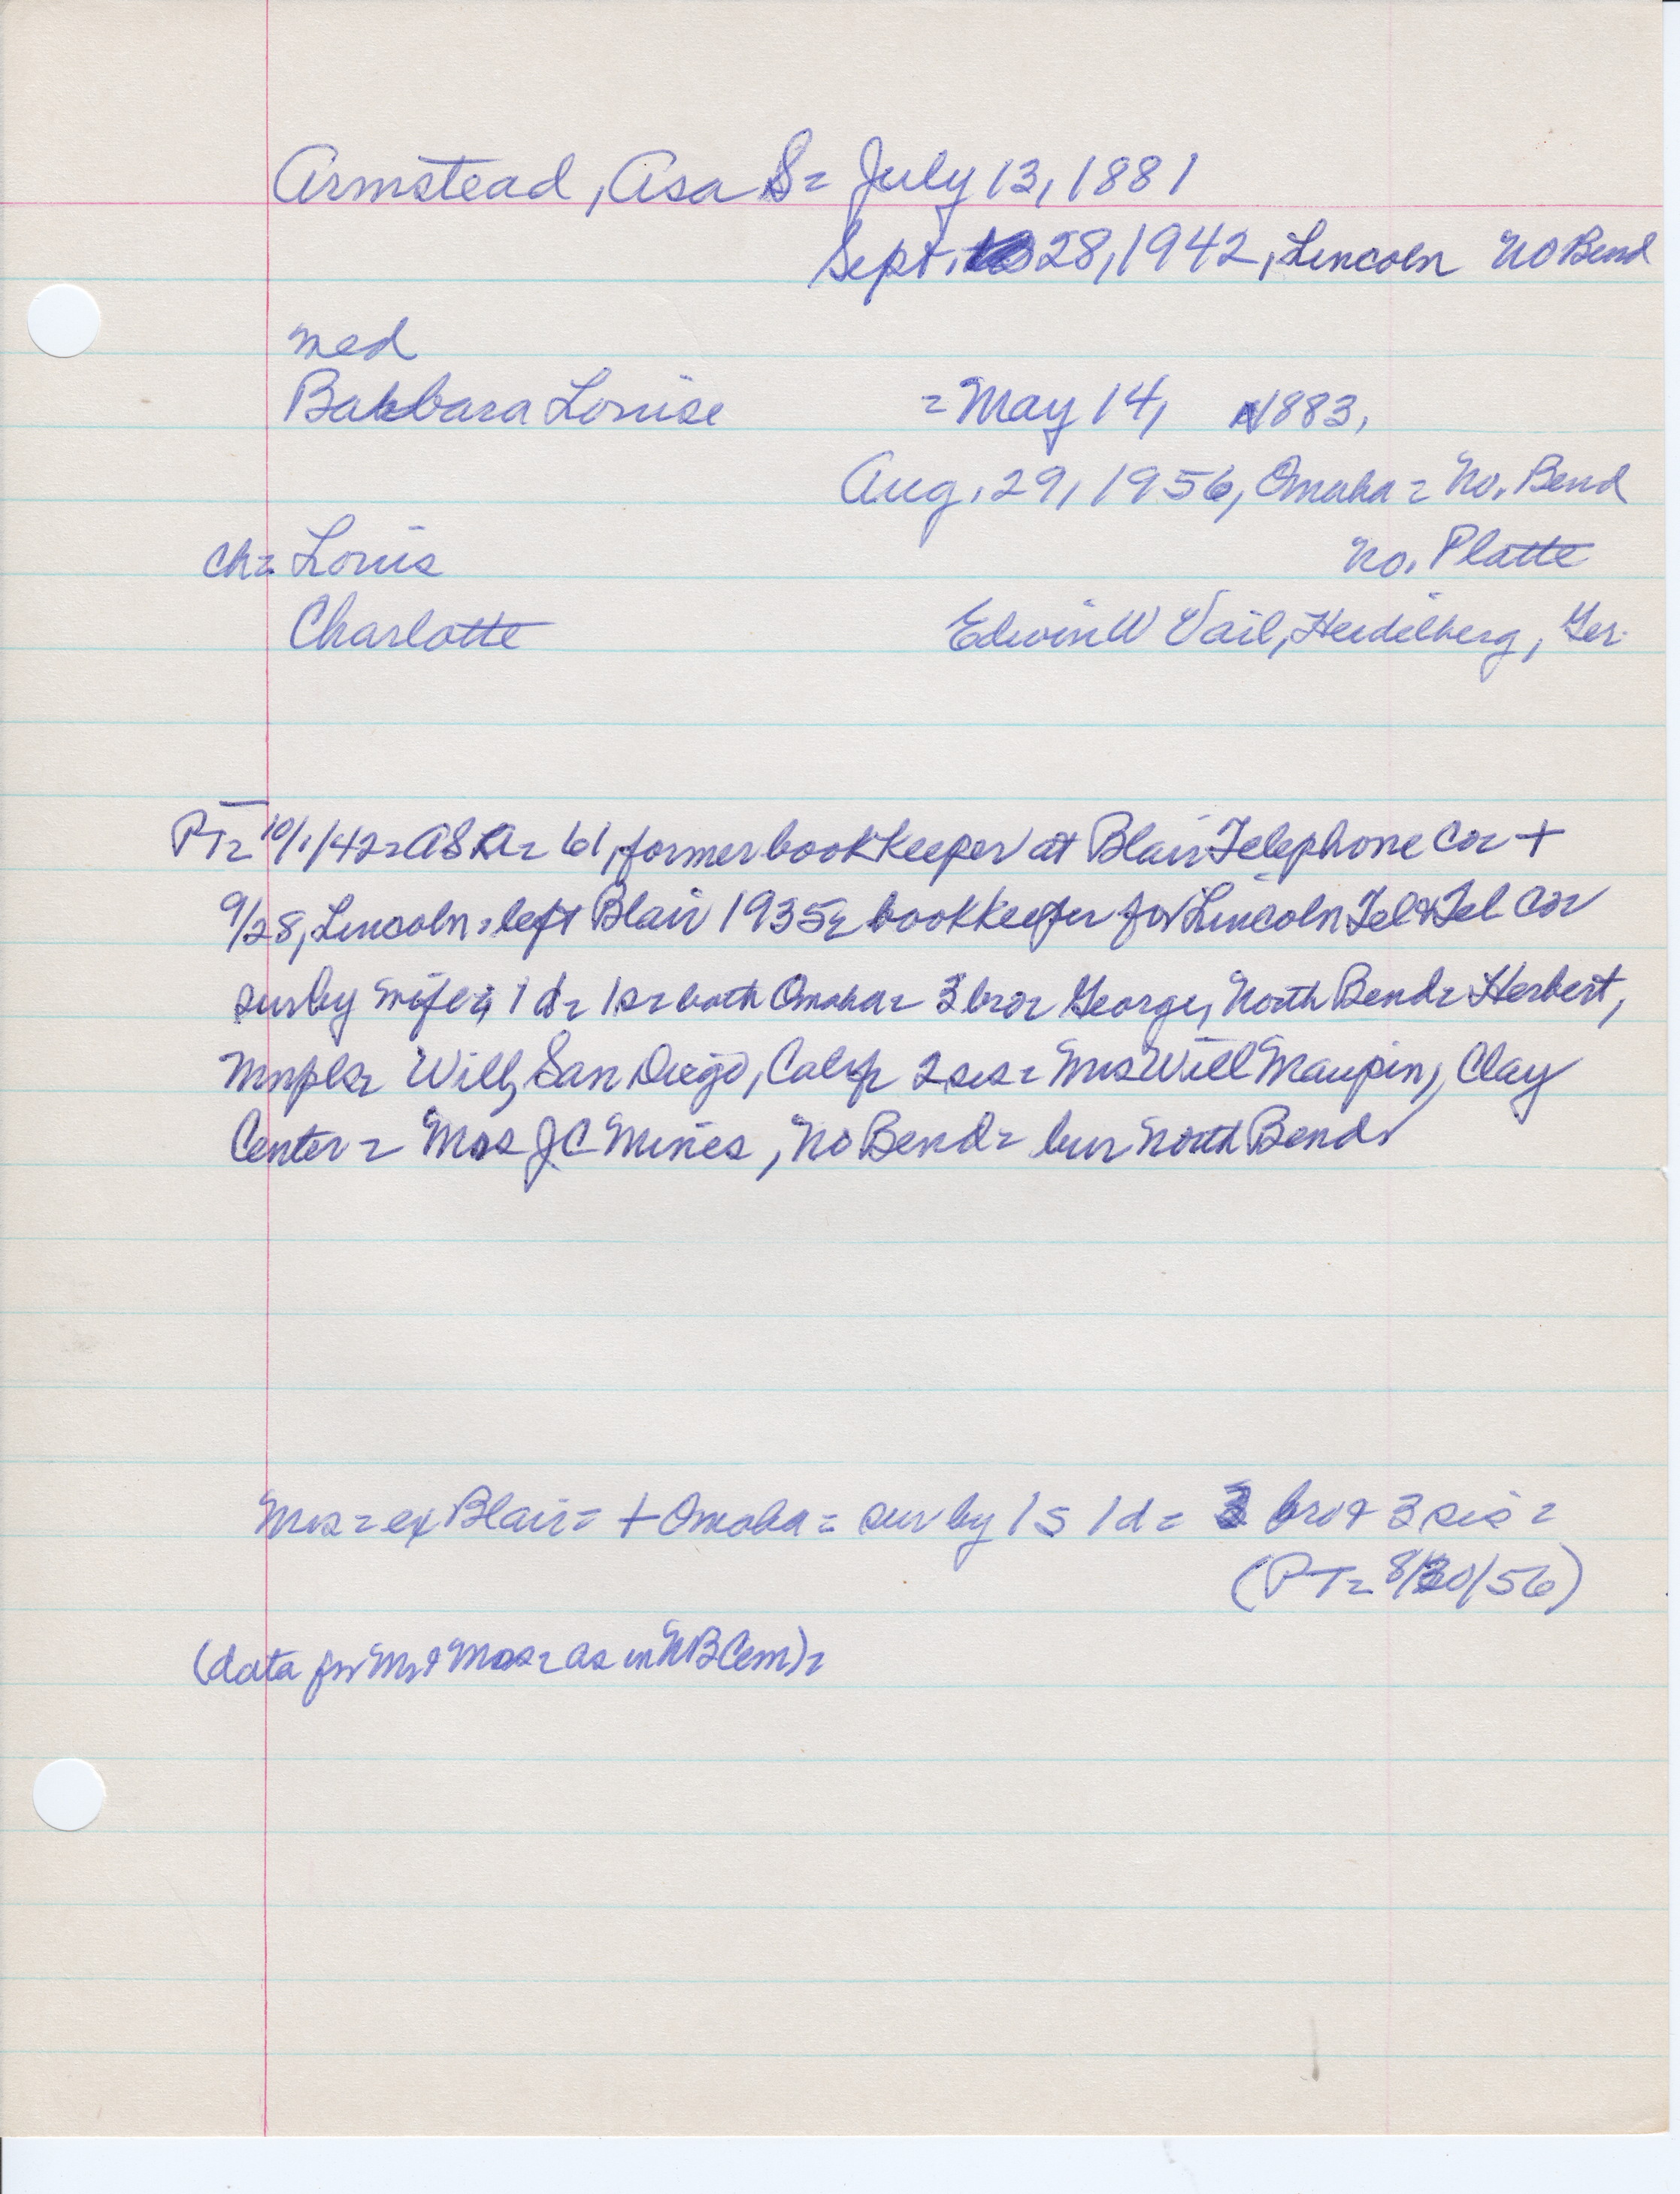 Armstead, Asa S= July 13, 1881
Sept. 28, 1942, Lincoln No Bend
med
Barbara Louise = May 14, 1883,
Aug. 29, 1956, Omaha = No. Bend
ch= Louis No. Platte
Charlotte Edwin W Vail, Heidelberg, Ger.
PT= 10/1/42= ASA= 61, former bookkeeper at Blair Telephone Co= +
9/28, Lincoln= left Blair 1935= bookkeeper for Lincoln Tel & Tel Co=
sur by wife= 1 d= 1s= both Omaha= 3 bro= George, North Bend= Herbert,
Mnpls= Will, San Diego, Calif= 2 sis= Mrs Will Maupin, Clay
Center= Mrs J C Mines, No Bend= bur North Bend=
Mrs= ex Blair= + Omaha= sur by 1s 1d= 3 bro & 3 sis=
(PT= 8/30/56)
(data for Mr & Mrs= as in NB Cem)=